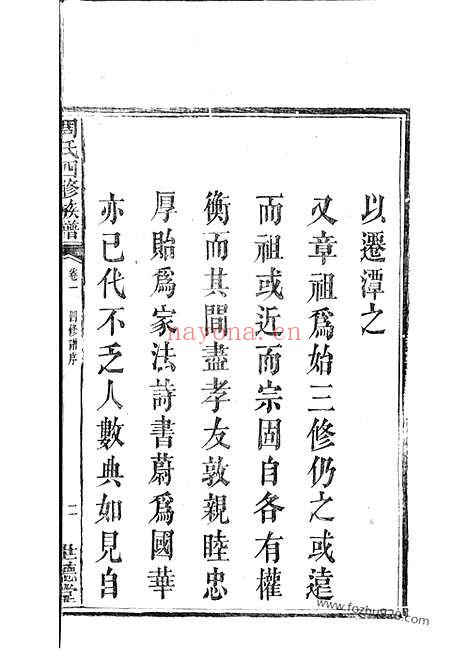 以遷潭之
又章祖爲始三修仍之或遠
而祖或近而宗固自各有權
衡而其間盡孝友敦親睦忠
厚貽爲家法詩書蔚爲國華
亦已代不乏人數典如見自
周氏四修族譜
卷一
四修譜序
二
世德堂
nayona.cn
www.fozhu920.com